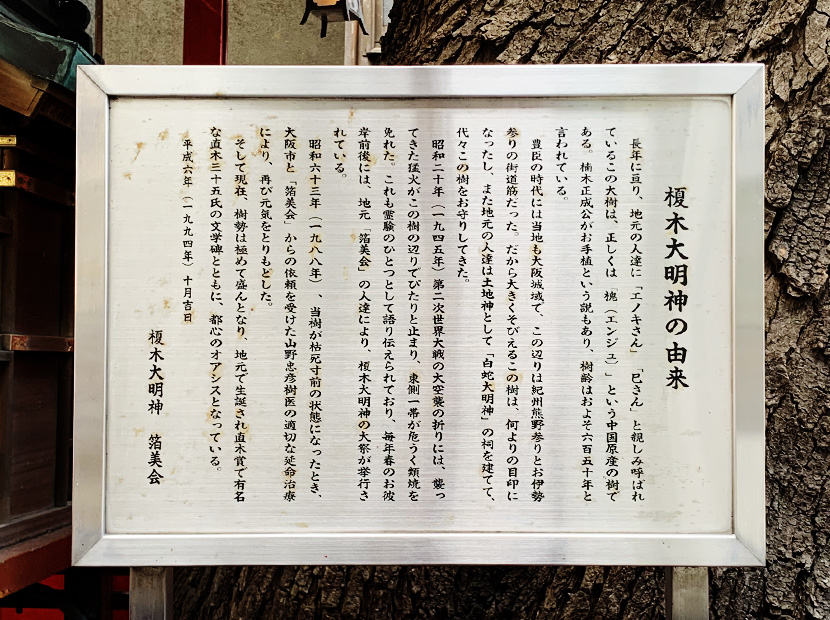 榎木大明神の由来
長年に亘り、地元の人達に「エノキさん」「巳さん」と親しみ呼ばれ
ているこの大樹は、正しくは「槐(エンジュ)」という中国原産の樹で
ある。楠木正成公がお手植という説もあり、樹齢はおよそ六百五十年と
言われている。
豊臣の時代には当地も大阪城域で、この辺りは紀州熊野参りとお伊勢
参りの街道筋だった。だから大きくそびえるこの樹は、何よりの目印に
なったし、また地元の人達は土地神として「白蛇大明神」の祠を建てて、
代々この樹をお守りしてきた。
昭和二十年(一九四五年)第二次世界大戦の大空襲の折りには、襲っ
てきた猛火がこの樹の辺りでぴたりと止まり、東側一帯が危うく類焼を
免れた。これも霊験のひとつとして語り伝えられており、毎年春のお彼
岸前後には、地元「箔美会」の人達により、榎木大明神の大祭が挙行さ
れている。
昭和六十三年(一九八八年)、当樹が枯死寸前の状態になったとき、
大阪市と「箔美会」からの依頼を受けた山野忠彦樹医の適切な延命治療
により、再び元気をとりもどした。
そして現在、樹勢は極めて盛んとなり、地元で生誕され直木賞で有名
な直木三十五氏の文学碑とともに、都心のオアシスとなっている。
平成六年(一九九四年)十月吉日
榎木大明神 箔美会